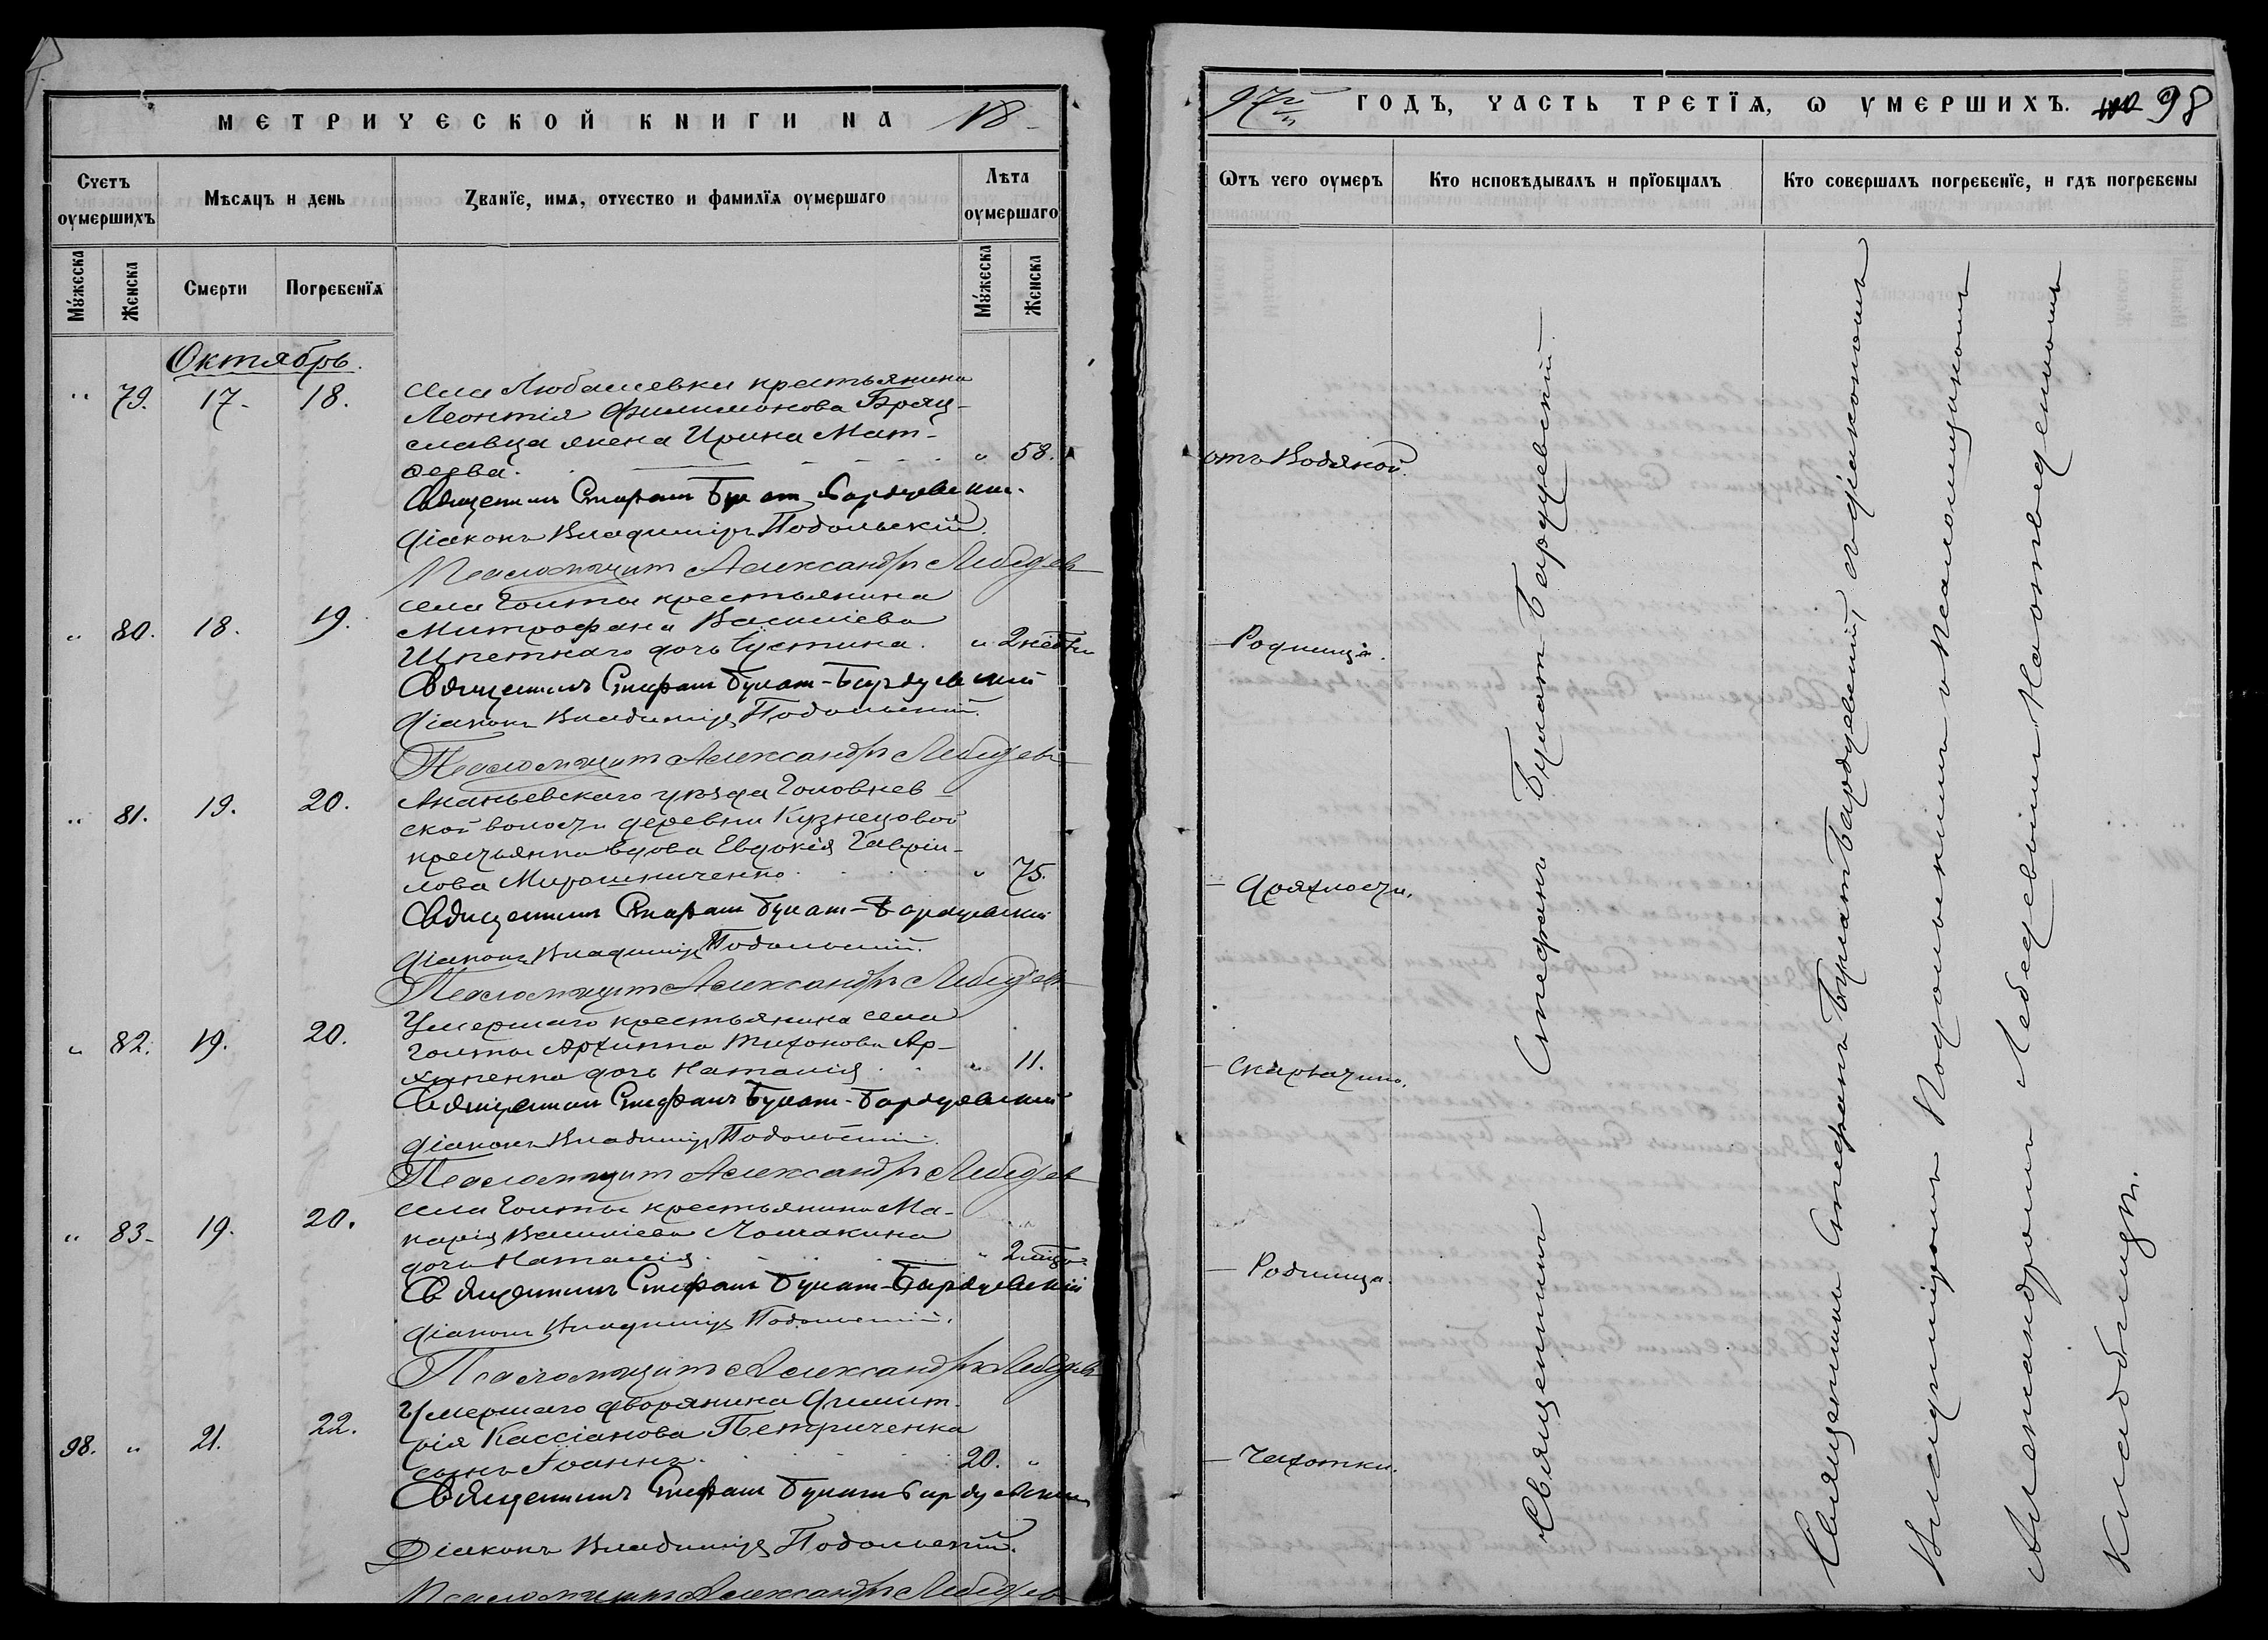 МЕТРИЧЕСКОЙ КНИГИ НА 18
Счетъ оумершихъ
Мѣсяцъ и день
Званїе, имѧ, отчество и фамилїѧ оумершаго
Лѣта оумершаго
Мꙋжеска
Женска
Смерти
Погребенїѧ
Мꙋжеска
Женска
Октябрь.
" 79. 17. 18.
села Любашевки крестьянина
Леонтія Филимонова Брац-
славца жена Ирина Мат-
" 58.
Священникъ Стефанъ Булат-Бардуевскій
Діаконъ Владиміръ Подольскій.
Псаломщикъ Александръ Лебедев
" 80. 18. 19.
села Голты крестьянина
Митрофана Василіева
Шпетнаго дочь Іустина. " 2 нед
Священникъ Стефанъ Булат-Бардуевский
Діаконъ Владиміръ Подольскій.
Псаломщикъ Александръ Лебедев
" 81. 19. 20.
Ананьевскаго уѣзда Головнев-
ской волости деревни Кузнецовой
крестьянка вдова Евдокія Гаврiи-
лова Мирошниченко. " 75.
Священникъ Стефанъ Булат-Бардуевский
Діаконъ Владиміръ Подольскій.
Псаломщикъ Александръ Лебедев
" 82. 19. 20.
Умершаго крестьянина села
Голты Архиппа Тихонова Ар-
хипенка дочь Наталія " 11.
Священникъ Стефанъ Булат-Бардуевский
Діаконъ Владиміръ Подольскій.
Псаломщикъ Александръ Лебедев
" 83. 19. 20.
села Голты крестьянина Ма-
карія Василіева Лошакина
дочь Наталія " 2
Священникъ Стефанъ Булат-Бардуевскій
Діаконъ Владиміръ Подольскій.
Псаломщикъ Александръ Лебедев
98. " 21. 22.
Умершаго дворянина Димит-
рія Кассіанова Петриченка
сынъ Іоаннъ. 20. "
Священникъ Стефанъ Булат Бардуевский
Діаконъ Владиміръ Подольскій.
Псаломщикъ Александръ Лебедев
97 ГОДЪ, ЧАСТЬ ТРЕТЇѦ, Ѡ ꙊМЕРШИХЪ. 98
Ѿтъ чего оумеръ
Кто исповѣдывалъ и прїобщалъ
Кто совершалъ погребенїе, и гдѣ погребены
отъ Водяной.
Родимца.
Дряхлости.
Скарлатины.
Родимца.
Чахотки.
Священникъ Стефанъ Булат Бардуевскій
Священникъ Стефанъ Булат Бардуевский, съ діакономъ
Владиміромъ Подольскимъ и псаломщикомъ
Александромъ Лебедевымъ на отведенномъ
кладбищѣ.